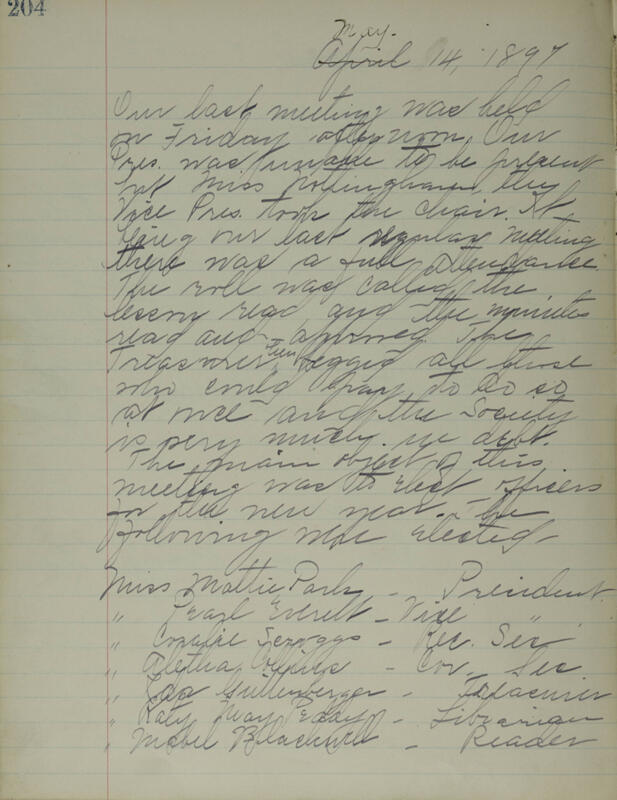 204
May.
April 14, 1897
Our last meeting was held
on Friday afternoon. Our
Pres. was unable to be present
but Miss Nottingham, the
Vice Pres. took the chair. It
being our last regular meeting
there was a full attendance
The roll was called, the
lesson read and the minutes
read and approved. The
Treasurer then begged all those
who could pay to do so
at once and the Society
is very much in debt.
The main object of this
meeting was to elect officers
for the new year. The
following were elected-
Miss Mattie Park - President.
" Pearl Everett - Vice "
" Coralie Scroggs - Rec. Sec
" Aletha Collins - Cor. Sec
" Ida - Treasurer
" Katy May Eddy - Librarian
" Mabel - Reader